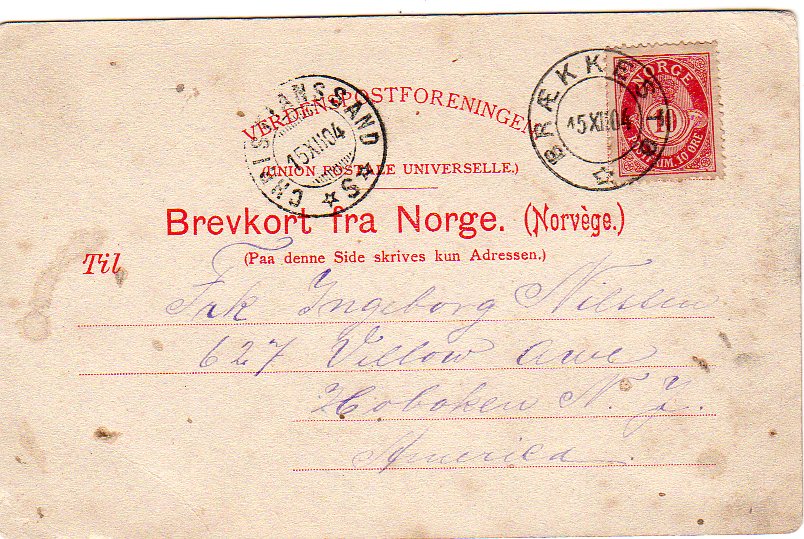 VERDENSPOSTFORENINGEN
(UNION POSTALE UNIVERSELLE.)
Brevkort fra Norge. (Norvège.)
(Paa denne Side skrives kun Adressen.)
Til
Frk Ingeborg Nilsen
627 Villow Awe
Hoboken N. J.
America.
CHRISTIANSSAND S
15 XII 04
BRÆKKESTØ
15 XII 04
NORGE
10
FRIM. 10 ØRE